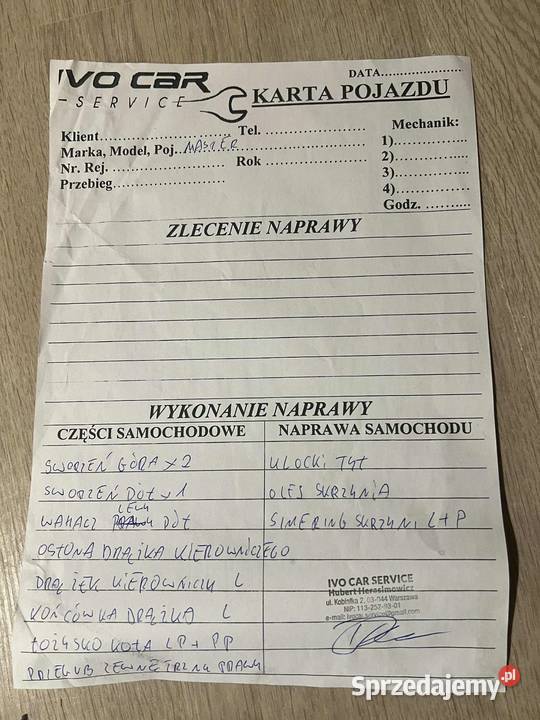 IVO CAR
SERVICE
DATA
KARTA POJAZDU
Klient
Tel.
Mechanik:
Marka, Model, Poj. MASTER
1)
Nr. Rej.
Rok
2)
Przebieg
3)
4)
Godz.
ZLECENIE NAPRAWY
WYKONANIE NAPRAWY
CZĘŚCI SAMOCHODOWE
NAPRAWA SAMOCHODU
SWORZEŃ GÓRA x 2
KLOCKI TYŁ
SWORZEŃ DÓŁ x 1
OLEJ SKRZYNIA
LEWY
WAHACZ DÓŁ
SIMERING SKRZYNI L+P
OSŁONA DRĄŻKA KIEROWNICZEGO
DRĄŻEK KIEROWNICZY L
KOŃCÓWKA DRĄŻKA L
ŁOŻYSKO KOŁA LP + PP
PRZEGUB ZEWNĘTRZNY PRAWY
IVO CAR SERVICE
Hubert Herasimowicz
ul. Kobiałka 2, 03-044 Warszawa
NIP: 113-252-93-01
Sprzedajemy.pl